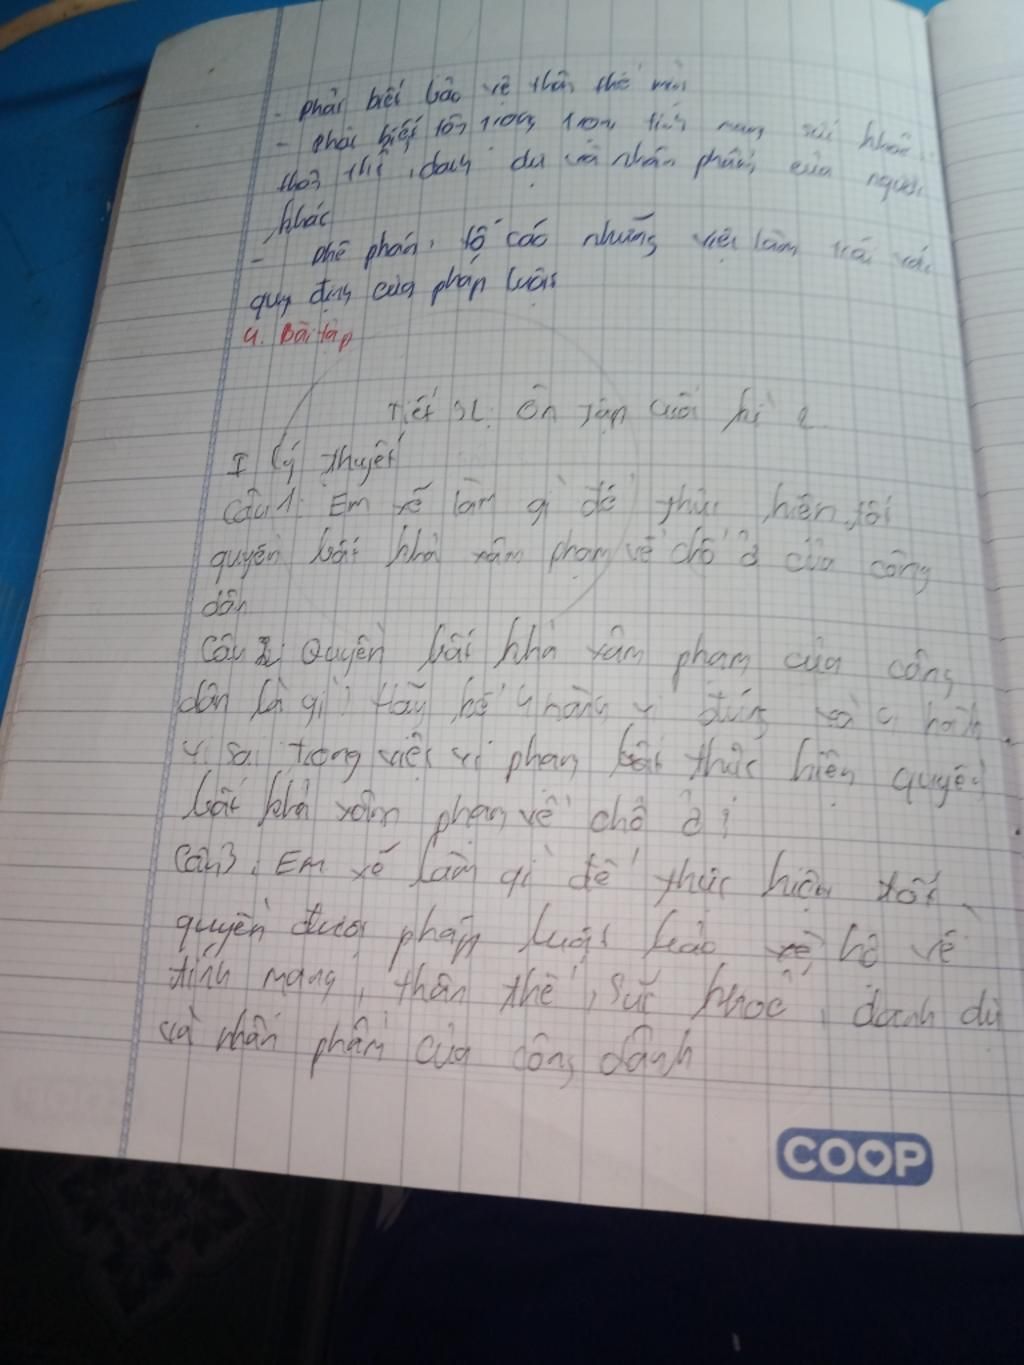 - phải biết bảo vệ thân thể mình
- phải biết tôn trọng tính mạng, sức khoẻ,
thân thể, danh dự và nhân phẩm của người
khác
- phê phán, tố cáo những việc làm trái với
quy định của pháp luật
4. Bài tập
Tiết 32: Ôn tập cuối kì 2
I Lý thuyết
Câu 1: Em sẽ làm gì để thực hiện tốt
quyền bất khả xâm phạm về chỗ ở của công
dân
Câu 2: Quyền bất khả xâm phạm của công
dân là gì? Hãy kể 4 hành vi đúng và 4 hành
vi sai trong việc vi phạm thực hiện quyền
bất khả xâm phạm về chỗ ở?
Câu 3: Em sẽ làm gì để thực hiện tốt
quyền được pháp luật bảo hộ về
tính mạng, thân thể, sức khoẻ, danh dự
và nhân phẩm của công dânh
COOP